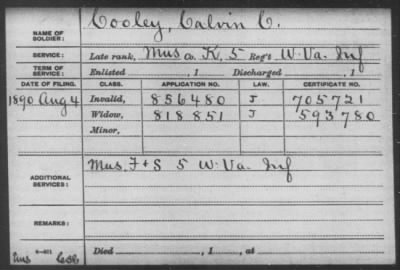 NAME OF SOLDIER: Cooley, Calvin C.
SERVICE: Late rank, Mus Co. K, 5 Reg't W. Va. Inf
TERM OF SERVICE: Enlisted , 1 Discharged , 1
DATE OF FILING. CLASS. APPLICATION NO. LAW. CERTIFICATE NO.
1890 Aug 4 Invalid, 856480 J 705721
Widow, 818851 J 593780
Minor,
ADDITIONAL SERVICES: Mus. F & S 5 W. Va. Inf
REMARKS:
Died , 1 , at